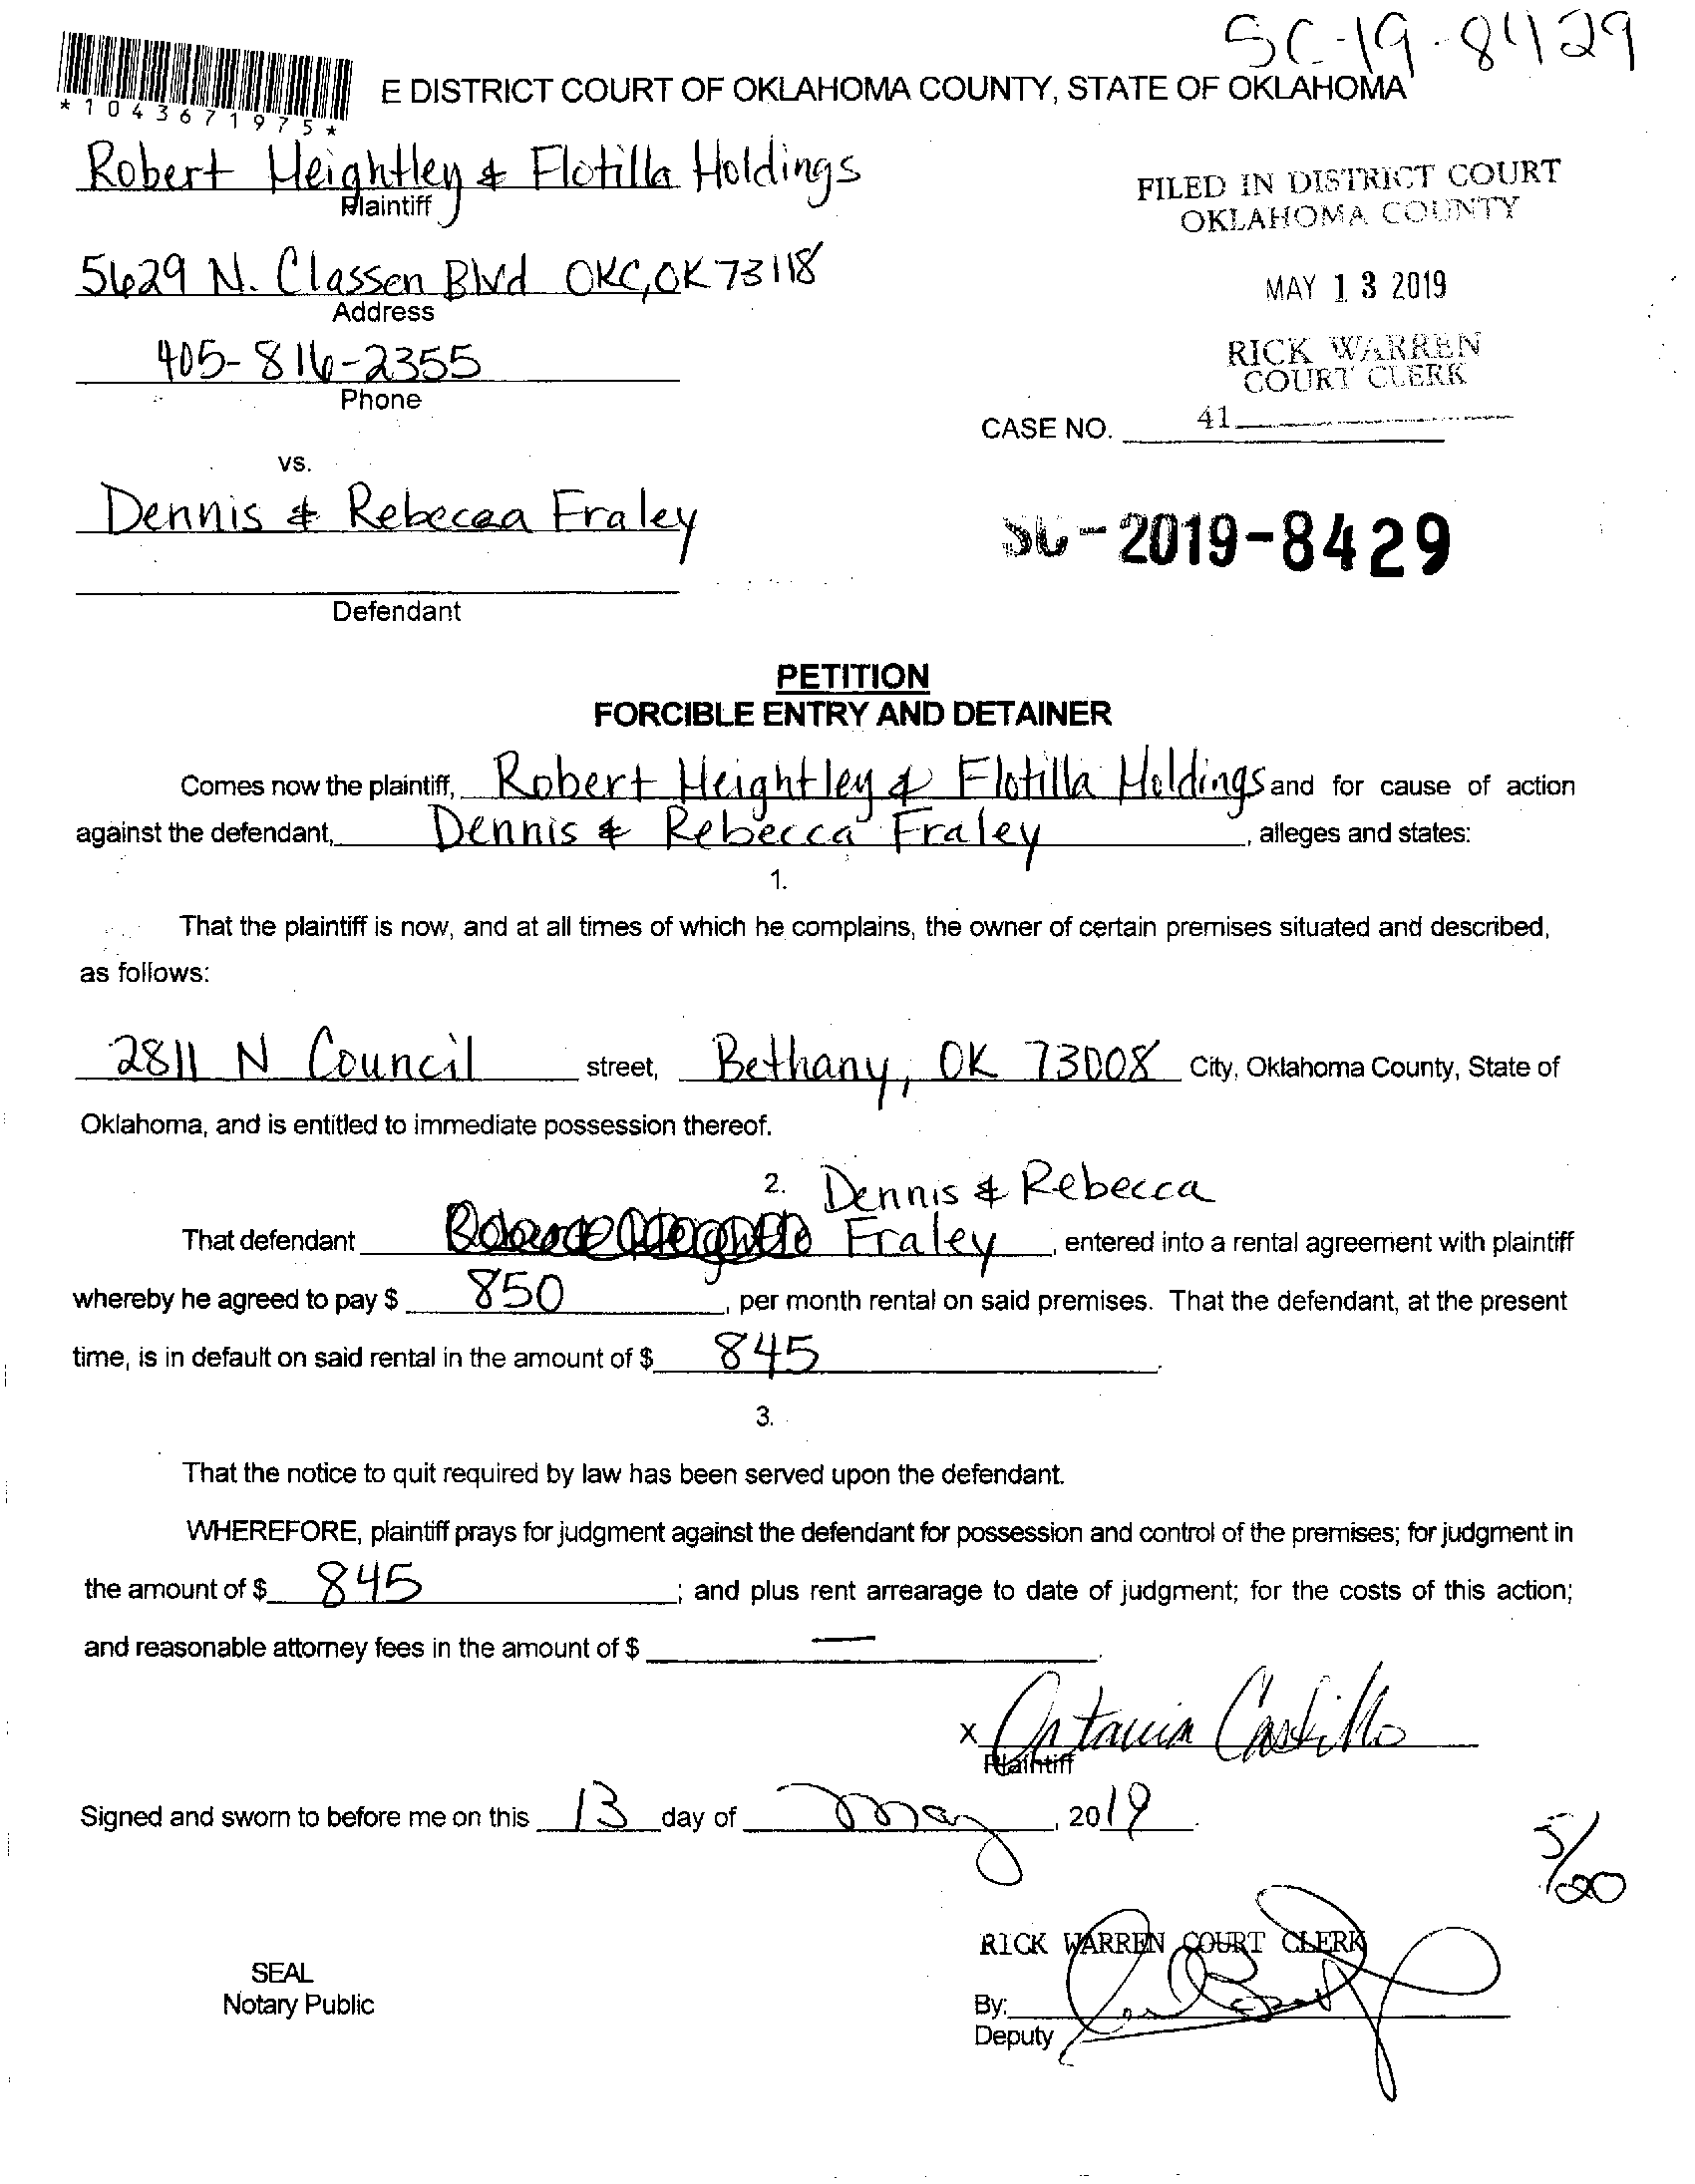 SC-19-8429
*1043671975*
E DISTRICT COURT OF OKLAHOMA COUNTY, STATE OF OKLAHOMA
Robert Heightley & Flotilla Holdings
Plaintiff
FILED IN DISTRICT COURT
OKLAHOMA COUNTY
5629 N. Classen Blvd OKC, OK 73118
Address
MAY 13 2019
405-816-2355
Phone
RICK WARREN
COURT CLERK
41
CASE NO.
vs.
Dennis & Rebecca Fraley
SC-2019-8429
Defendant
PETITION
FORCIBLE ENTRY AND DETAINER
Comes now the plaintiff, Robert Heightley & Flotilla Holdings and for cause of action
against the defendant, Dennis & Rebecca Fraley, alleges and states:
1.
That the plaintiff is now, and at all times of which he complains, the owner of certain premises situated and described,
as follows:
2811 N Council street, Bethany, OK 73008 City, Oklahoma County, State of
Oklahoma, and is entitled to immediate possession thereof.
2. Dennis & Rebecca
That defendant Fraley, entered into a rental agreement with plaintiff
whereby he agreed to pay $ 850, per month rental on said premises. That the defendant, at the present
time, is in default on said rental in the amount of $ 845.
3.
That the notice to quit required by law has been served upon the defendant.
WHEREFORE, plaintiff prays for judgment against the defendant for possession and control of the premises; for judgment in
the amount of $ 845; and plus rent arrearage to date of judgment; for the costs of this action;
and reasonable attorney fees in the amount of $ —.
x Castillo
Plaintiff
Signed and sworn to before me on this 13 day of May, 2019.
5/20
RICK WARREN COURT CLERK
SEAL
Notary Public
By:
Deputy